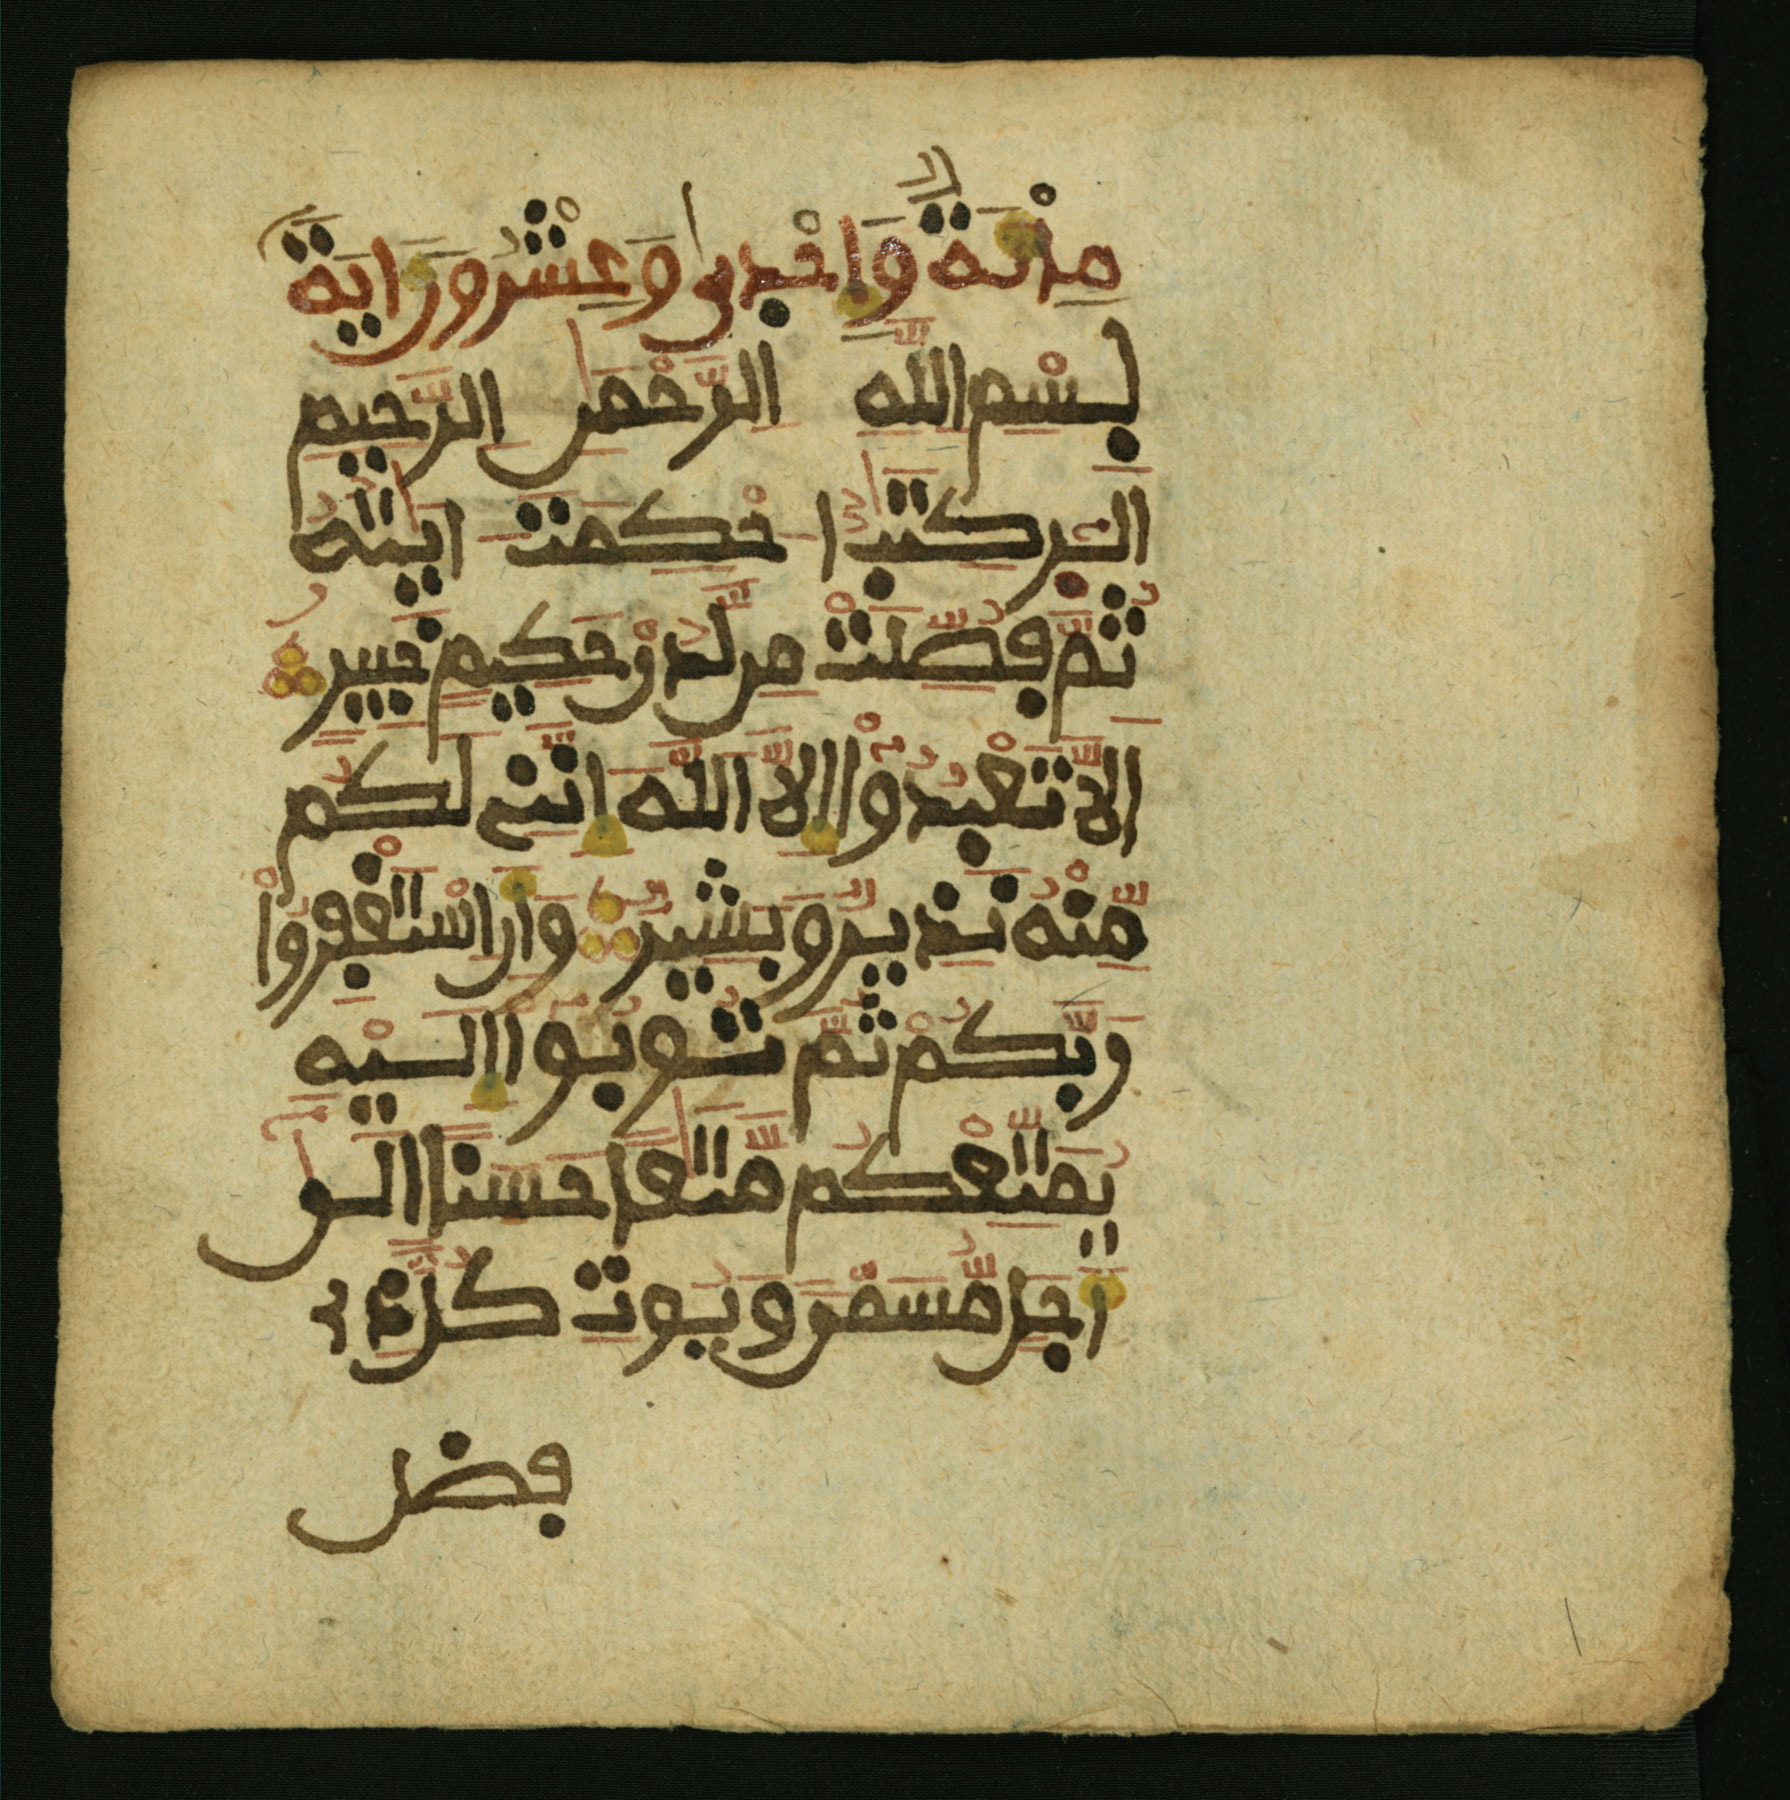 مِاْئَةٌ وَإِحْدٜى وَعِشْرُونَ ايَةً
بِسْمِ اللَّهِ الرَّحْمٰنِ الرَّحِيمِ
الٓر كِتَٰبٌ ا حْكِمَتَ ايَٰتُهُ
ثُمَّ فُصِّلَتْ مِن لَّدُنْ حَكِيمٍ خَبِيرٍ
اَلَّا تَعْبُدُوٓاْ إِلَّا اَللَّهَ إِنَّنِے لَكُم
مِّنْهُ نَذِيرٌ وَبَشِيرٌ وَأَنِ اِسْتَغْفِرُواْ
رَبَّكُمْ ثُمَّ تُوبُوٓاْ إِلَيْهِ
يُمَتِّعْكُم مَّتَٰعًا حَسَنًا اِلَىٰٓ
أَجَلٍ مُّسَمّىً وَيُوتِ كُلَّ ذِے
فضل